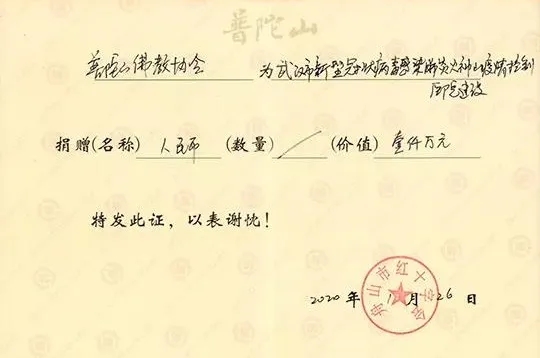 普陀山
普陀山佛教协会 为武汉市新型冠状病毒感染肺炎火神山疫情控制
医院建设
捐赠(名称) 人民币 (数量) / (价值) 壹仟万元
特发此证，以表谢忱！
舟山市红十字会
2020 年 1 月 26 日